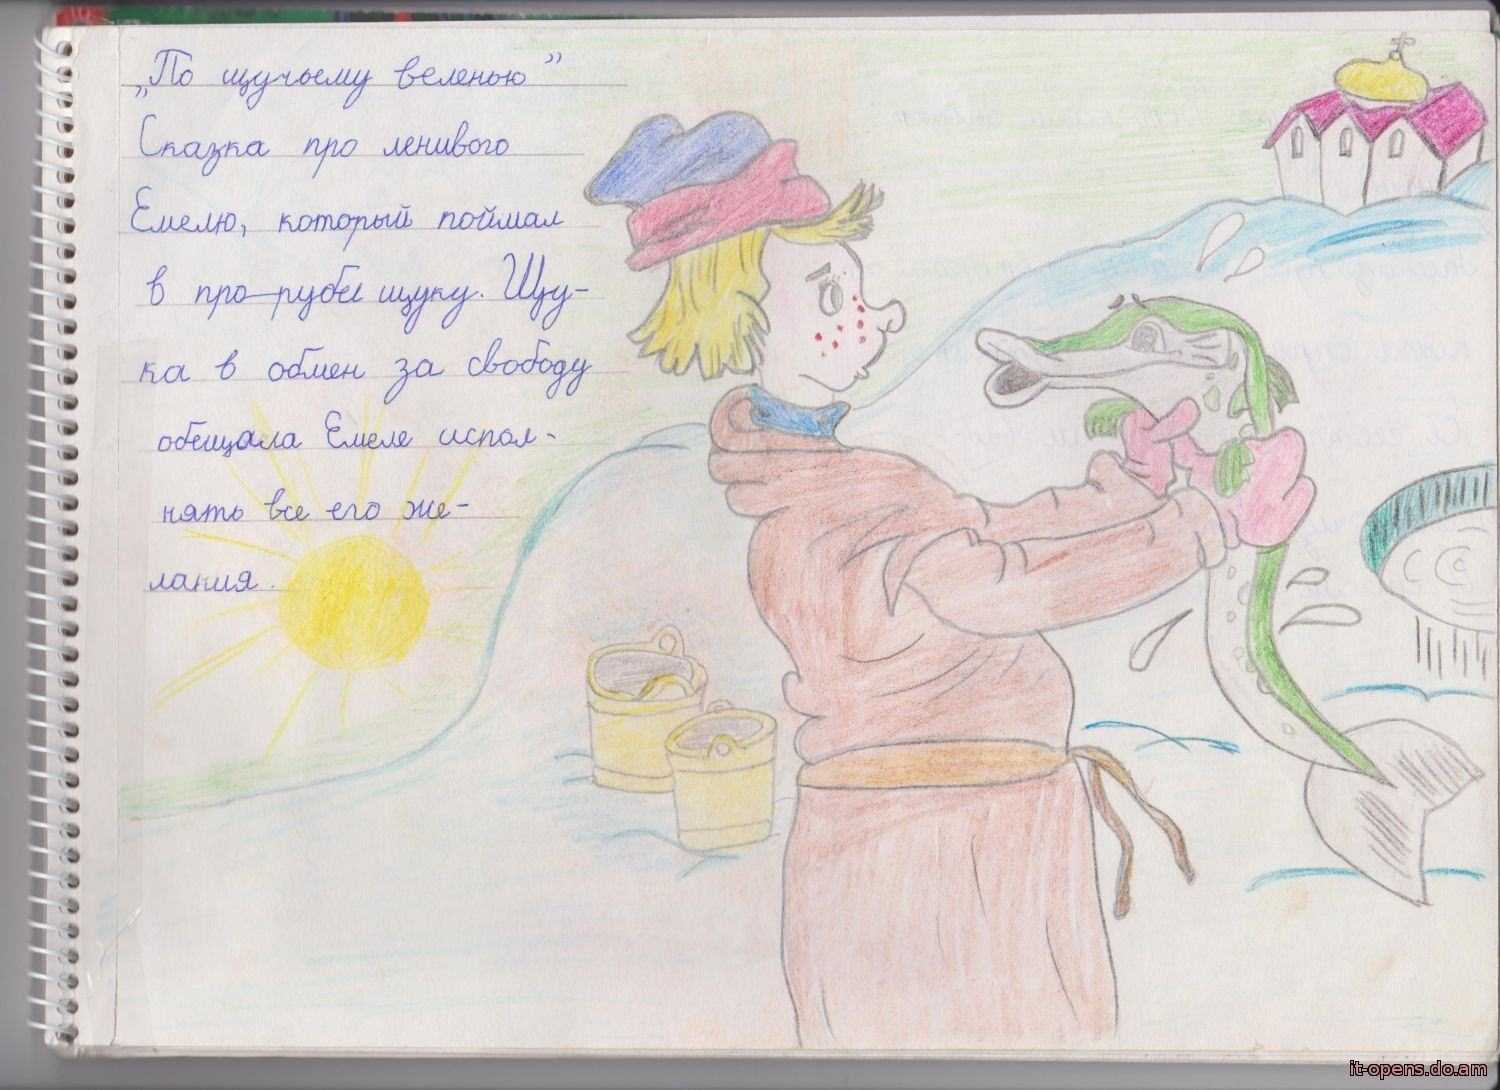 „По щучьему веленью”
Сказка про ленивого
Емелю, который поймал
в про-руби щуку. Щу-
ка в обмен за свободу
обещала Емеле испол-
нять все его же-
лания.
it-opens.do.am